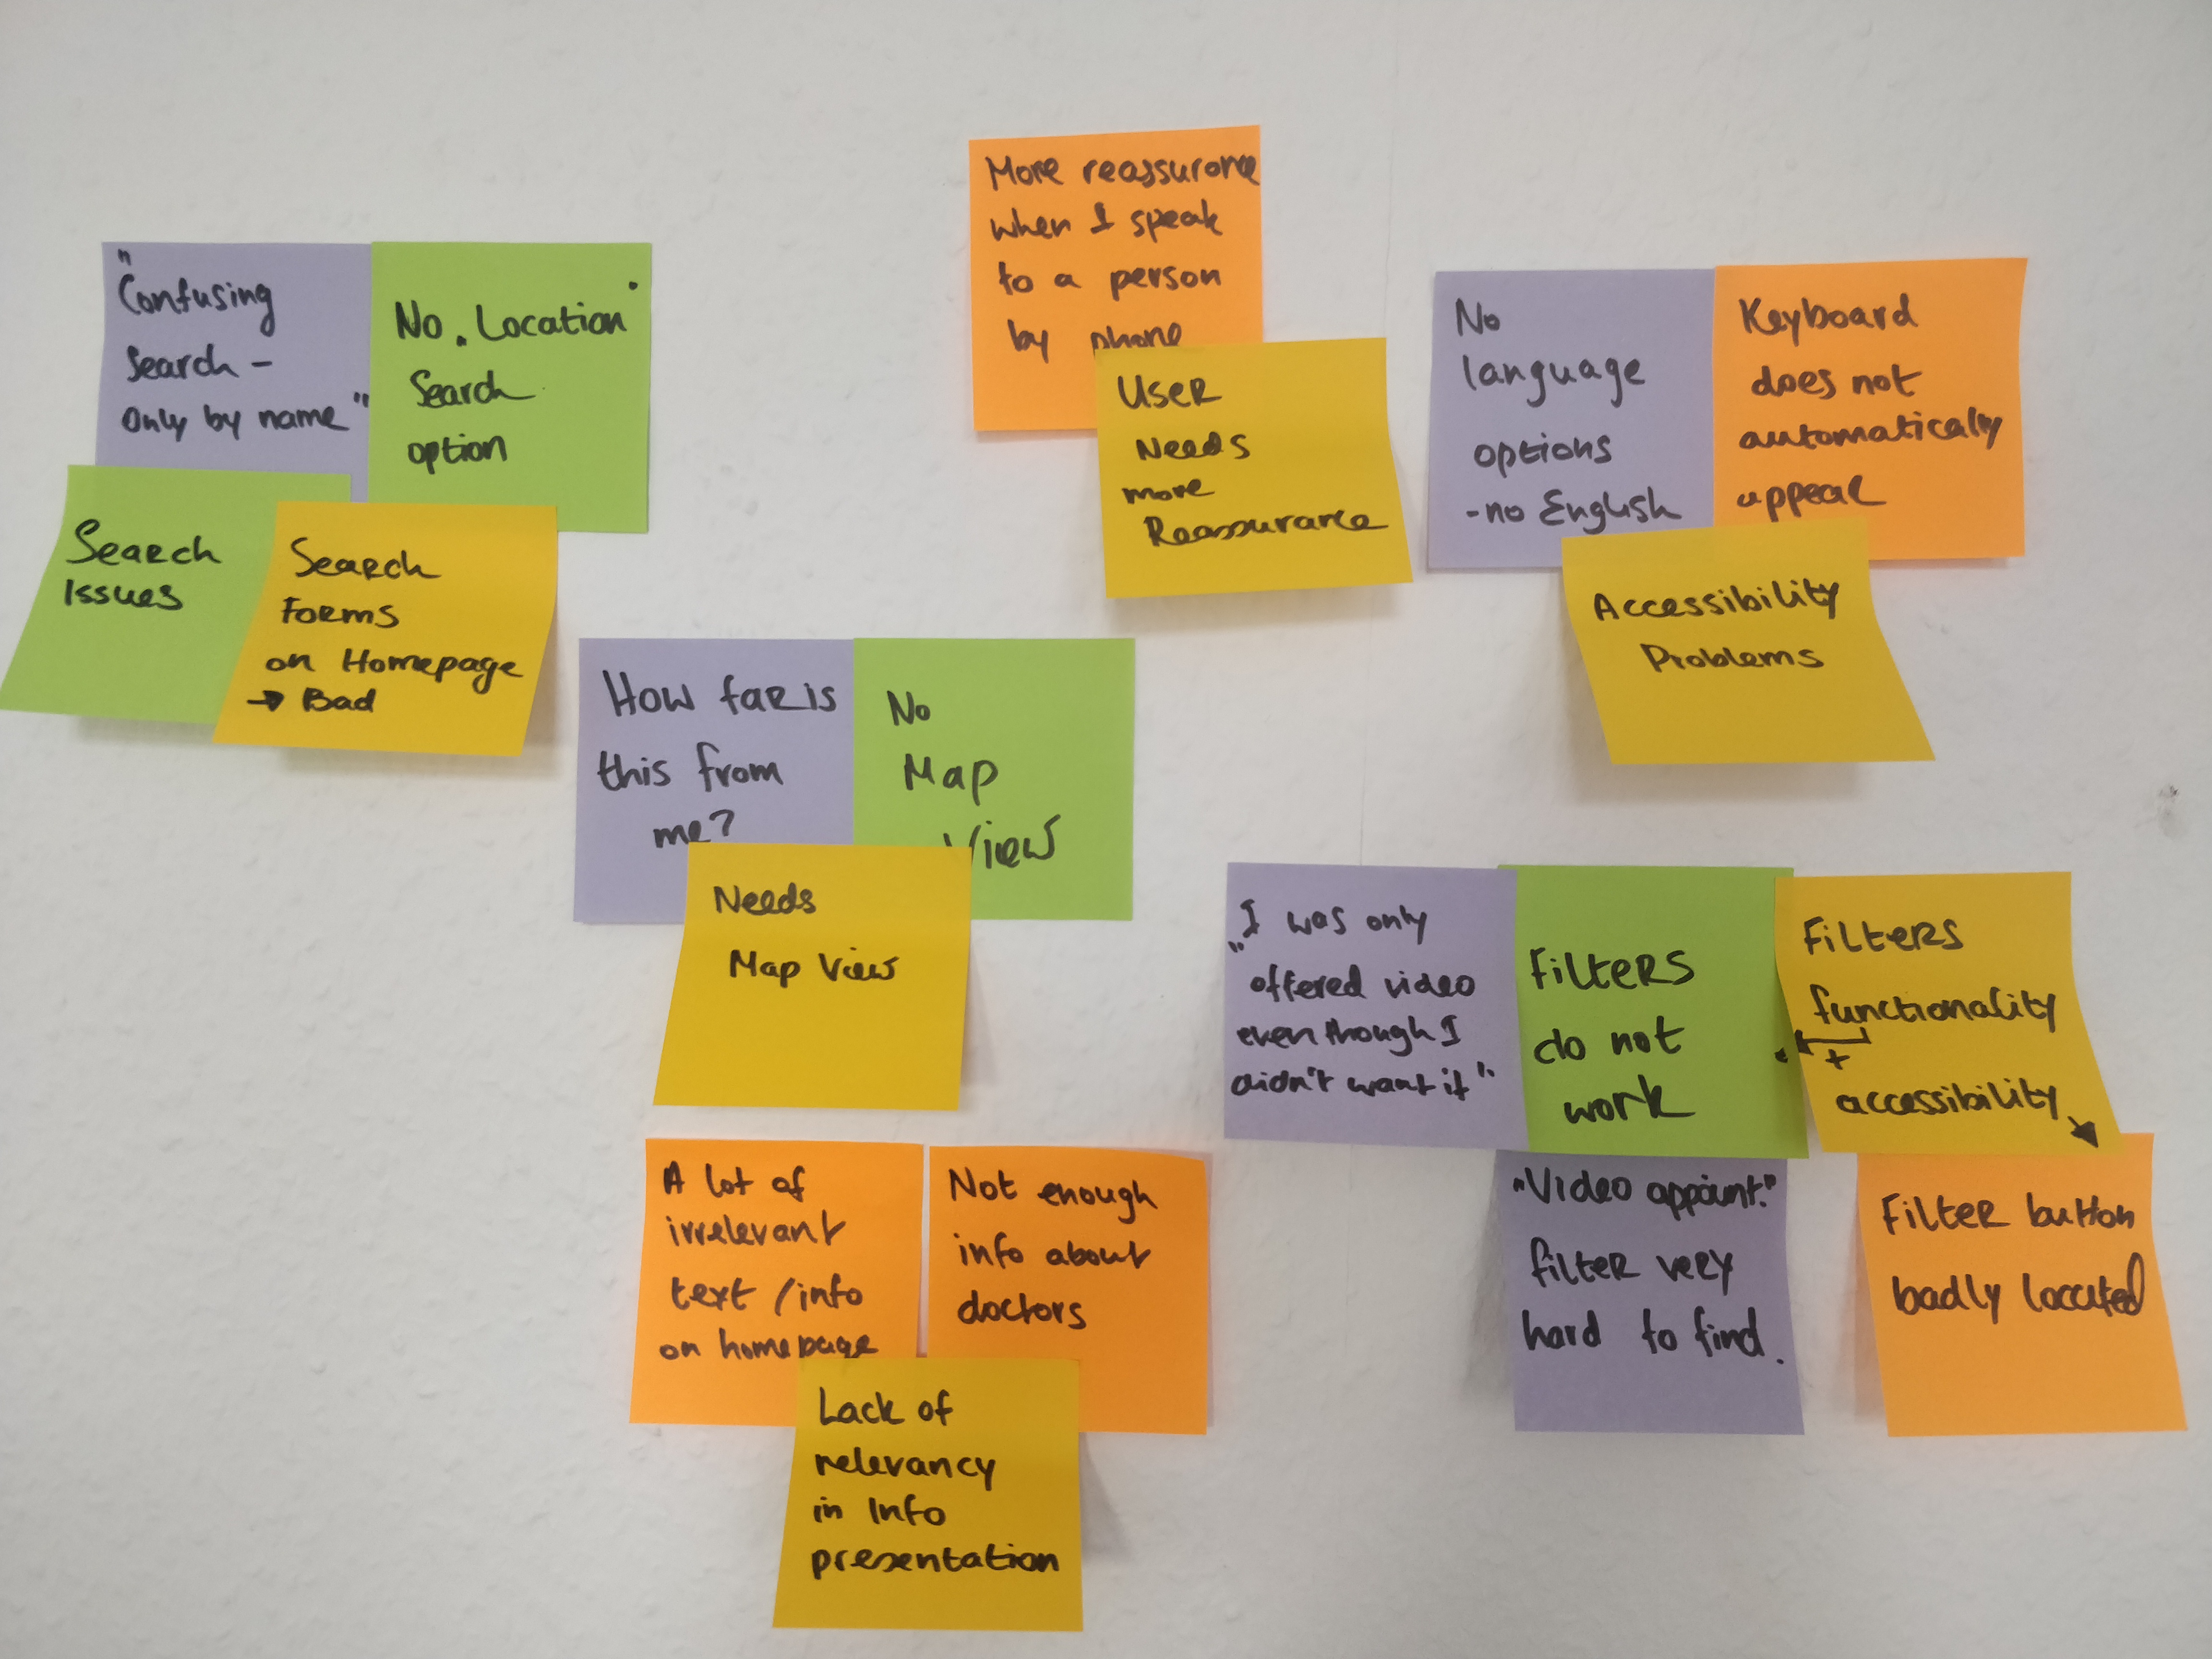 "Confusing
Search -
Only by name"
No "Location"
Search
option
Search
Issues
Search
Forms
on Homepage
→ Bad
More reassurance
when I speak
to a person
by phone
User
Needs
more
Reassurance
No
language
options
- no English
Keyboard
does not
automatically
appear
Accessibility
Problems
How far is
this from
me?
No
Map
View
Needs
Map View
"I was only
offered video
even though I
didn't want it"
Filters
do not
work
Filters
functionality
+
accessibility
"Video appoint."
filter very
hard to find.
Filter button
badly located
A lot of
irrelevant
text / info
on homepage
Not enough
info about
doctors
Lack of
relevancy
in Info
presentation